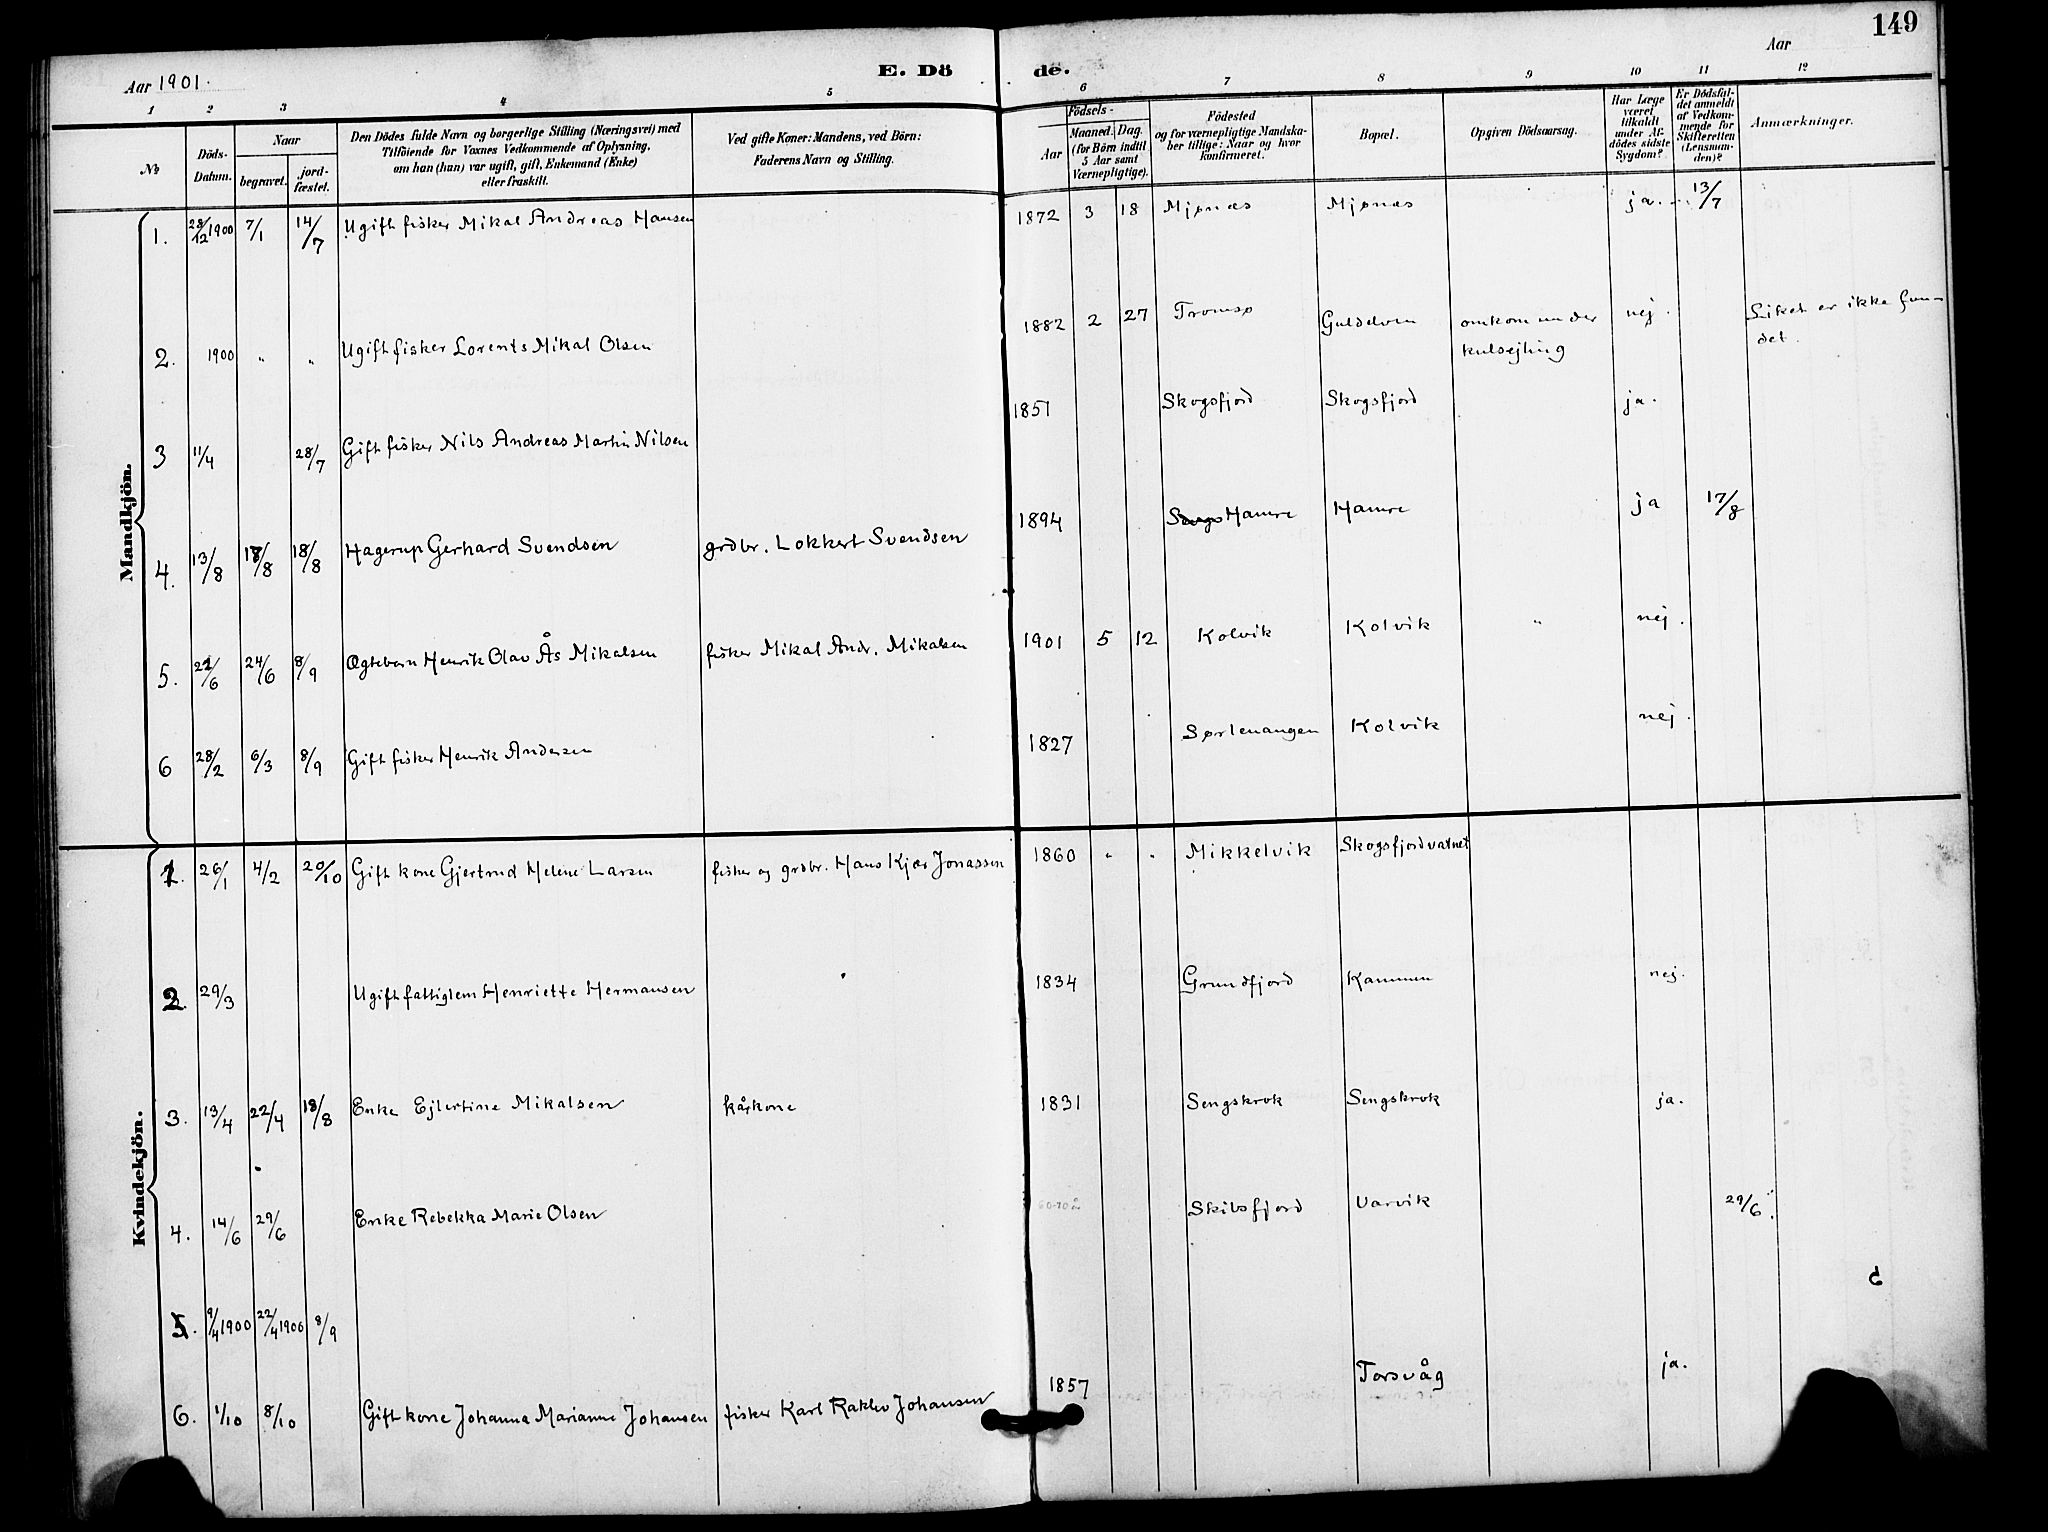 149
Aar 1901.
E. Dö de.
Aar
1 2 3 4 5 6 7 8 9 10 11 12
№
Döds-
Datum.
Naar
begravet.
jord-
fæstet.
Den Dödes fulde Navn og borgerlige Stilling (Næringsvei) med
Tilföiende for Voxnes Vedkommende af Oplysning,
om han (hun) var ugift, gift, Enkemand (Enke)
eller fraskilt.
Ved gifte Koner: Mandens, ved Börn:
Faderens Navn og Stilling.
Födsels-
Aar
Maaned. Dag.
(for Börn indtil
5 Aar samt
Værnepligtige).
Födested
og for værnepligtige Mandska-
ber tillige: Naar og hvor
konfirmeret.
Bopæl.
Opgiven Dödsaarsag.
Har Læge
været
tilkaldt
under Af-
dödes sidste
Sygdom?
Er Dödsfal-
det anmeldt
af Vedkom-
mende for
Skifteretten
(Lensman-
den)?
Anmærkninger.
Mandkjön.
1. 28/12 1900 7/1 14/7 Ugift fisker Mikal Andreas Hansen 1872 3 18 Mjønæs Mjønæs ja. 13/7
2. 1900 " " Ugift fisker Lorents Mikal Olsen 1882 2 27 Tromsø omkom under nej. Liket er ikke fun-
kulsejling det.
3 11/4 28/7 Gift fisker Nils Andreas Martin Nilsen 1851 Skogsfjord Skogsfjord ja.
4. 13/8 18/8 18/8 Hagerup Gerhard Svendsen grdbr. Lokkert Svendsen 1894 Hamre Hamre ja 17/8
5. 6 24/6 8/9 Ægtebarn Henrik Olav Ås Mikalsen fisker Mikal Andr. Mikalsen 1901 5 12 Kolvik Kolvik " nej.
6 28/2 6/3 8/9 Gift fisker Henrik Andersen 1827 Sørlenangen Kolvik nej.
Kvindekjön.
1. 26/1 4/2 20/10 Gift kone Gjertrud Helene Larsen fisker og grdbr. Hans Kjær Jonassen 1860 " " Mikkelvik Skogsfjordvatnet
2. 29/3 Ugift fattiglem Henriette Hermansen 1834 Grundfjord Kammen nej.
3. 13/4 22/4 18/8 Enke Ejlertine Mikalsen kårkone 1831 Sengskrok Sengskrok ja.
4. 14/6 29/6 Enke Rebekka Marie Olsen 60-70 år Skibsfjord Varvik 29/6.
5. 9/4 1900 22/4 1900 8/9
6. 1/10 8/10 Gift kone Johanna Marianne Johansen fisker Karl Johansen 1857 Torsvåg ja.